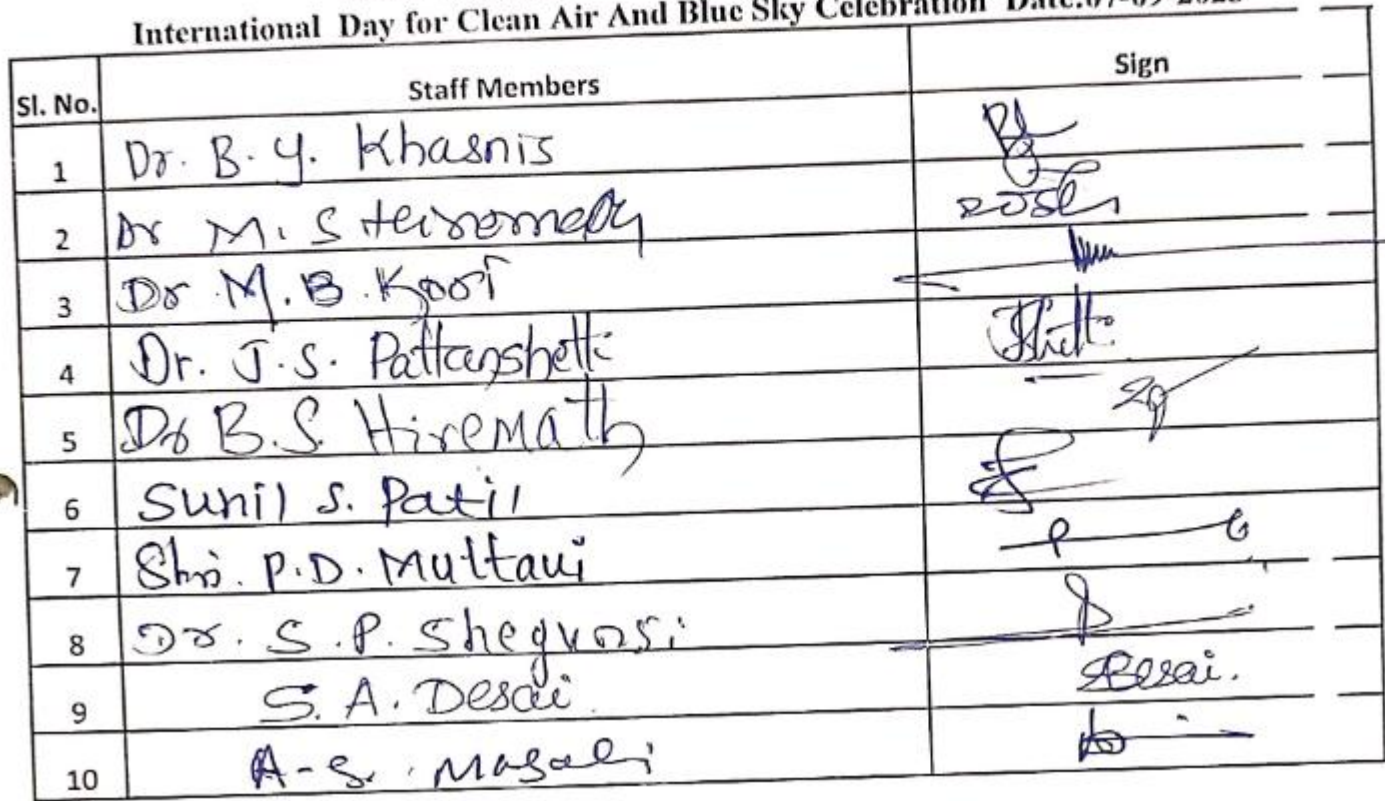 International Day for Clean Air And Blue Sky Celebration
Sl. No. Staff Members Sign
1 Dr. B. Y. Khasnis
2 Dr M. S
3 Dr. M. B. Koori
4 Dr. J. S. Pattanshetti
5 Dr B.S. Hiremath
6 Sunil S. Patil
7 Shri. P.D. Muttavi
8 Dr. S. P. Shegunsi
9 S. A. Desai Desai.
10 A-S. Masali